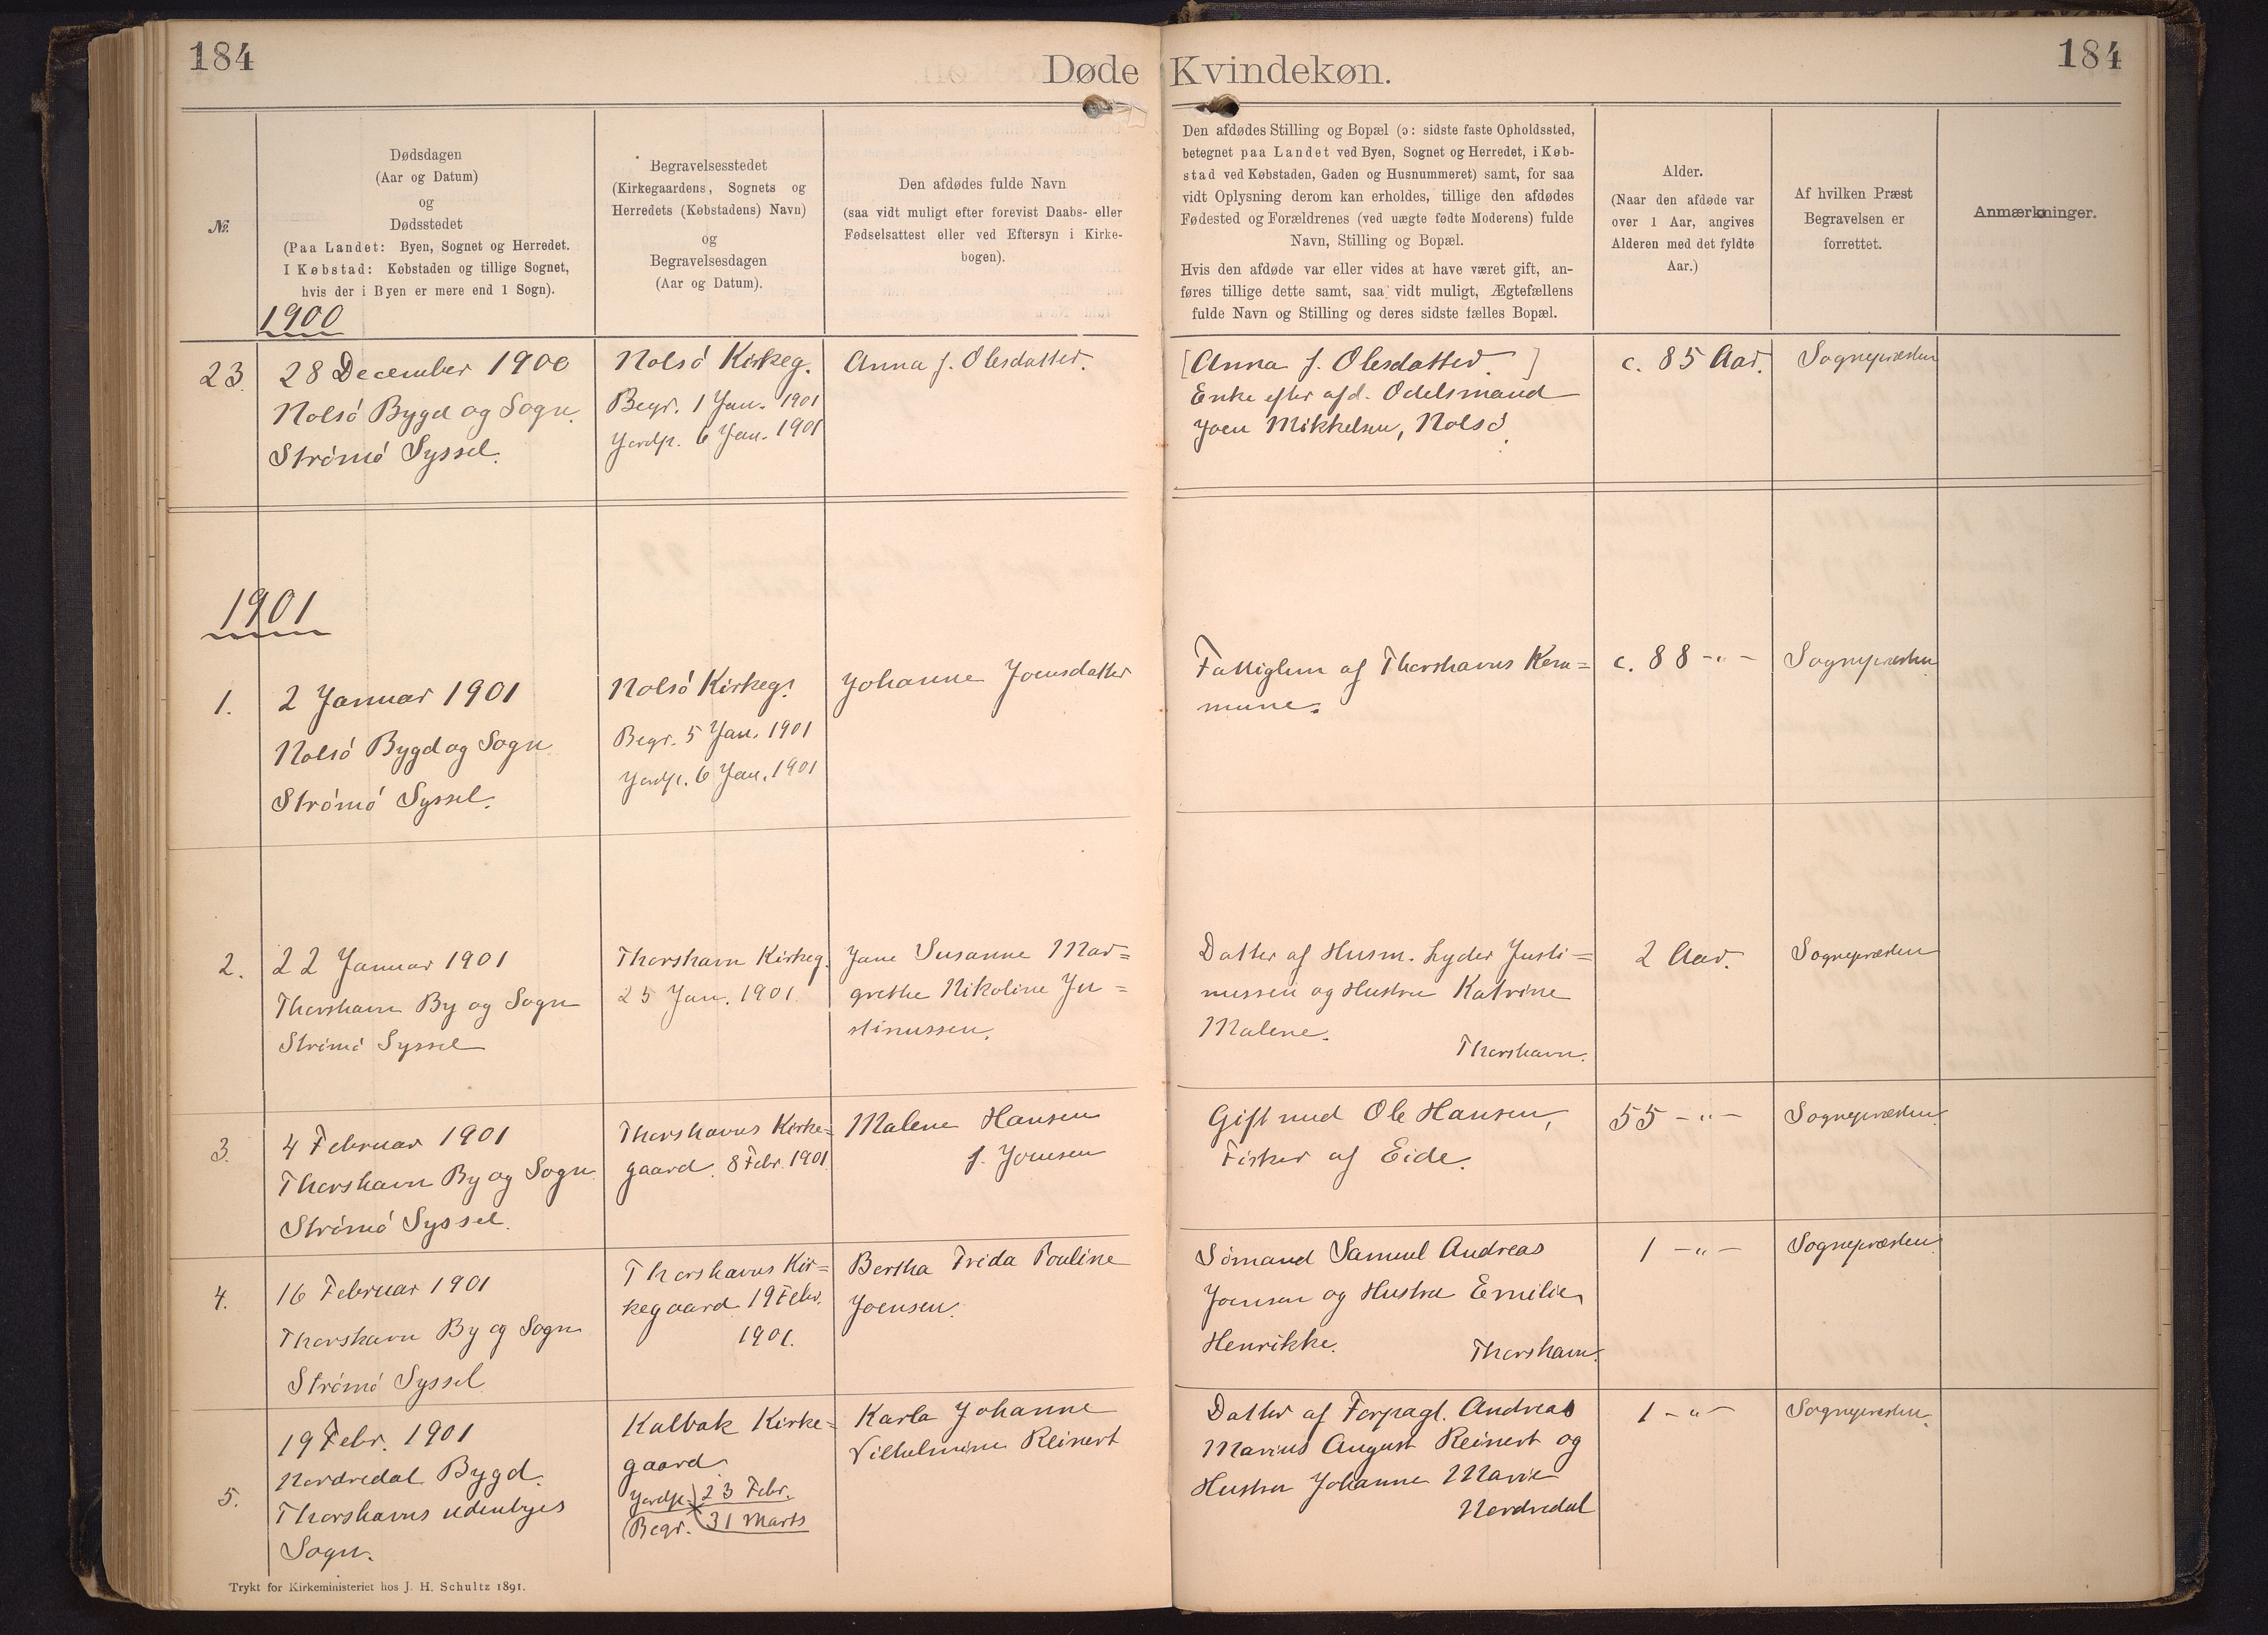 184
Døde Kvindekøn.
184
№.
Dødsdagen
(Aar og Datum)
og
Dødsstedet
(Paa Landet: Byen, Sognet og Herredet.
I Købstad: Købstaden og tillige Sognet,
hvis der i Byen er mere end 1 Sogn).
Begravelsesstedet
(Kirkegaardens, Sognets og
Herredets (Købstadens) Navn)
og
Begravelsesdagen
(Aar og Datum).
Den afdødes fulde Navn
(saa vidt muligt efter forevist Daabs- eller
Fødselsattest eller ved Eftersyn i Kirke-
bogen).
Den afdødes Stilling og Bopæl (ɔ: sidste faste Opholdssted,
betegnet paa Landet ved Byen, Sognet og Herredet, i Køb-
stad ved Købstaden, Gaden og Husnummeret) samt, for saa
vidt Oplysning derom kan erholdes, tillige den afdødes
Fødested og Forældrenes (ved uægte fødte Moderens) fulde
Navn, Stilling og Bopæl.
Hvis den afdøde var eller vides at have været gift, an-
føres tillige dette samt, saa vidt muligt, Ægtefællens
fulde Navn og Stilling og deres sidste fælles Bopæl.
Alder.
(Naar den afdøde var
over 1 Aar, angives
Alderen med det fyldte
Aar.)
Af hvilken Præst
Begravelsen er
forrettet.
Anmærkninger.
1900
23.
28 December 1900
Nolsö Bygd og Sogn.
Strömö Syssel.
Nolsö Kirkeg.
Begr. 1 Jan. 1901
Jordp. 6 Jan. 1901
Anna f. Olesdatter.
[Anna f. Olesdatter.]
Enke efter afd. Odelsmand
Joen Mikkelsen, Nolsö.
c. 85 Aar.
Sognepræsten
1901
1.
2 Januar 1901
Nolsö Bygd og Sogn
Strömö Syssel.
Nolsö Kirkeg.
Begr. 5 Jan. 1901
Jordp. 6 Jan. 1901
Johanne Joensdatter
Fattiglem af Thorshavns Kom=
mune.
c. 88 -„-
Sognepræsten
2.
22 Januar 1901
Thorshavn By og Sogn
Strömö Syssel
Thorshavn Kirkeg.
25 Jan. 1901.
Jane Susanne Mar=
grethe Nikoline Ju=
stinussen.
Datter af Husm. Lyder Justi=
nussen og Hustru Katrine
Malene.
Thorshavn.
2 Aar.
Sognepræsten
3.
4 Februar 1901
Thorshavn By og Sogn.
Strömö Syssel.
Thorshavns Kirke=
gaard. 8 Febr. 1901.
Malene Hansen
f. Joensen
Gift med Ole Hansen,
Fisker af Eide.
55 -„-
Sognepræsten.
4.
16 Februar 1901
Thorshavn By og Sogn
Strömö Syssel
Thorshavns Kir=
kegaard 19 Febr.
1901.
Bertha Frida Pouline
Joensen.
Sömand Samuel Andreas
Joensen og Hustru Emilie
Henrikke.
Thorshavn.
1 -„-
Sognepræsten.
5.
19 Febr. 1901
Nordredal Bygd.
Thorshavns udenbyes
Sogn.
Kalbak Kirke=
gaard.
Jordp. 23 Febr.
Begr. 31 Marts
Karla Johanne
Vilhelmine Reinert
Datter af Forpagt. Andreas
Marius August Reinert og
Hustru Johanne Marie
Nordredal
1 -„-
Sognepræsten.
Trykt for Kirkeministeriet hos J. H. Schultz 1891.